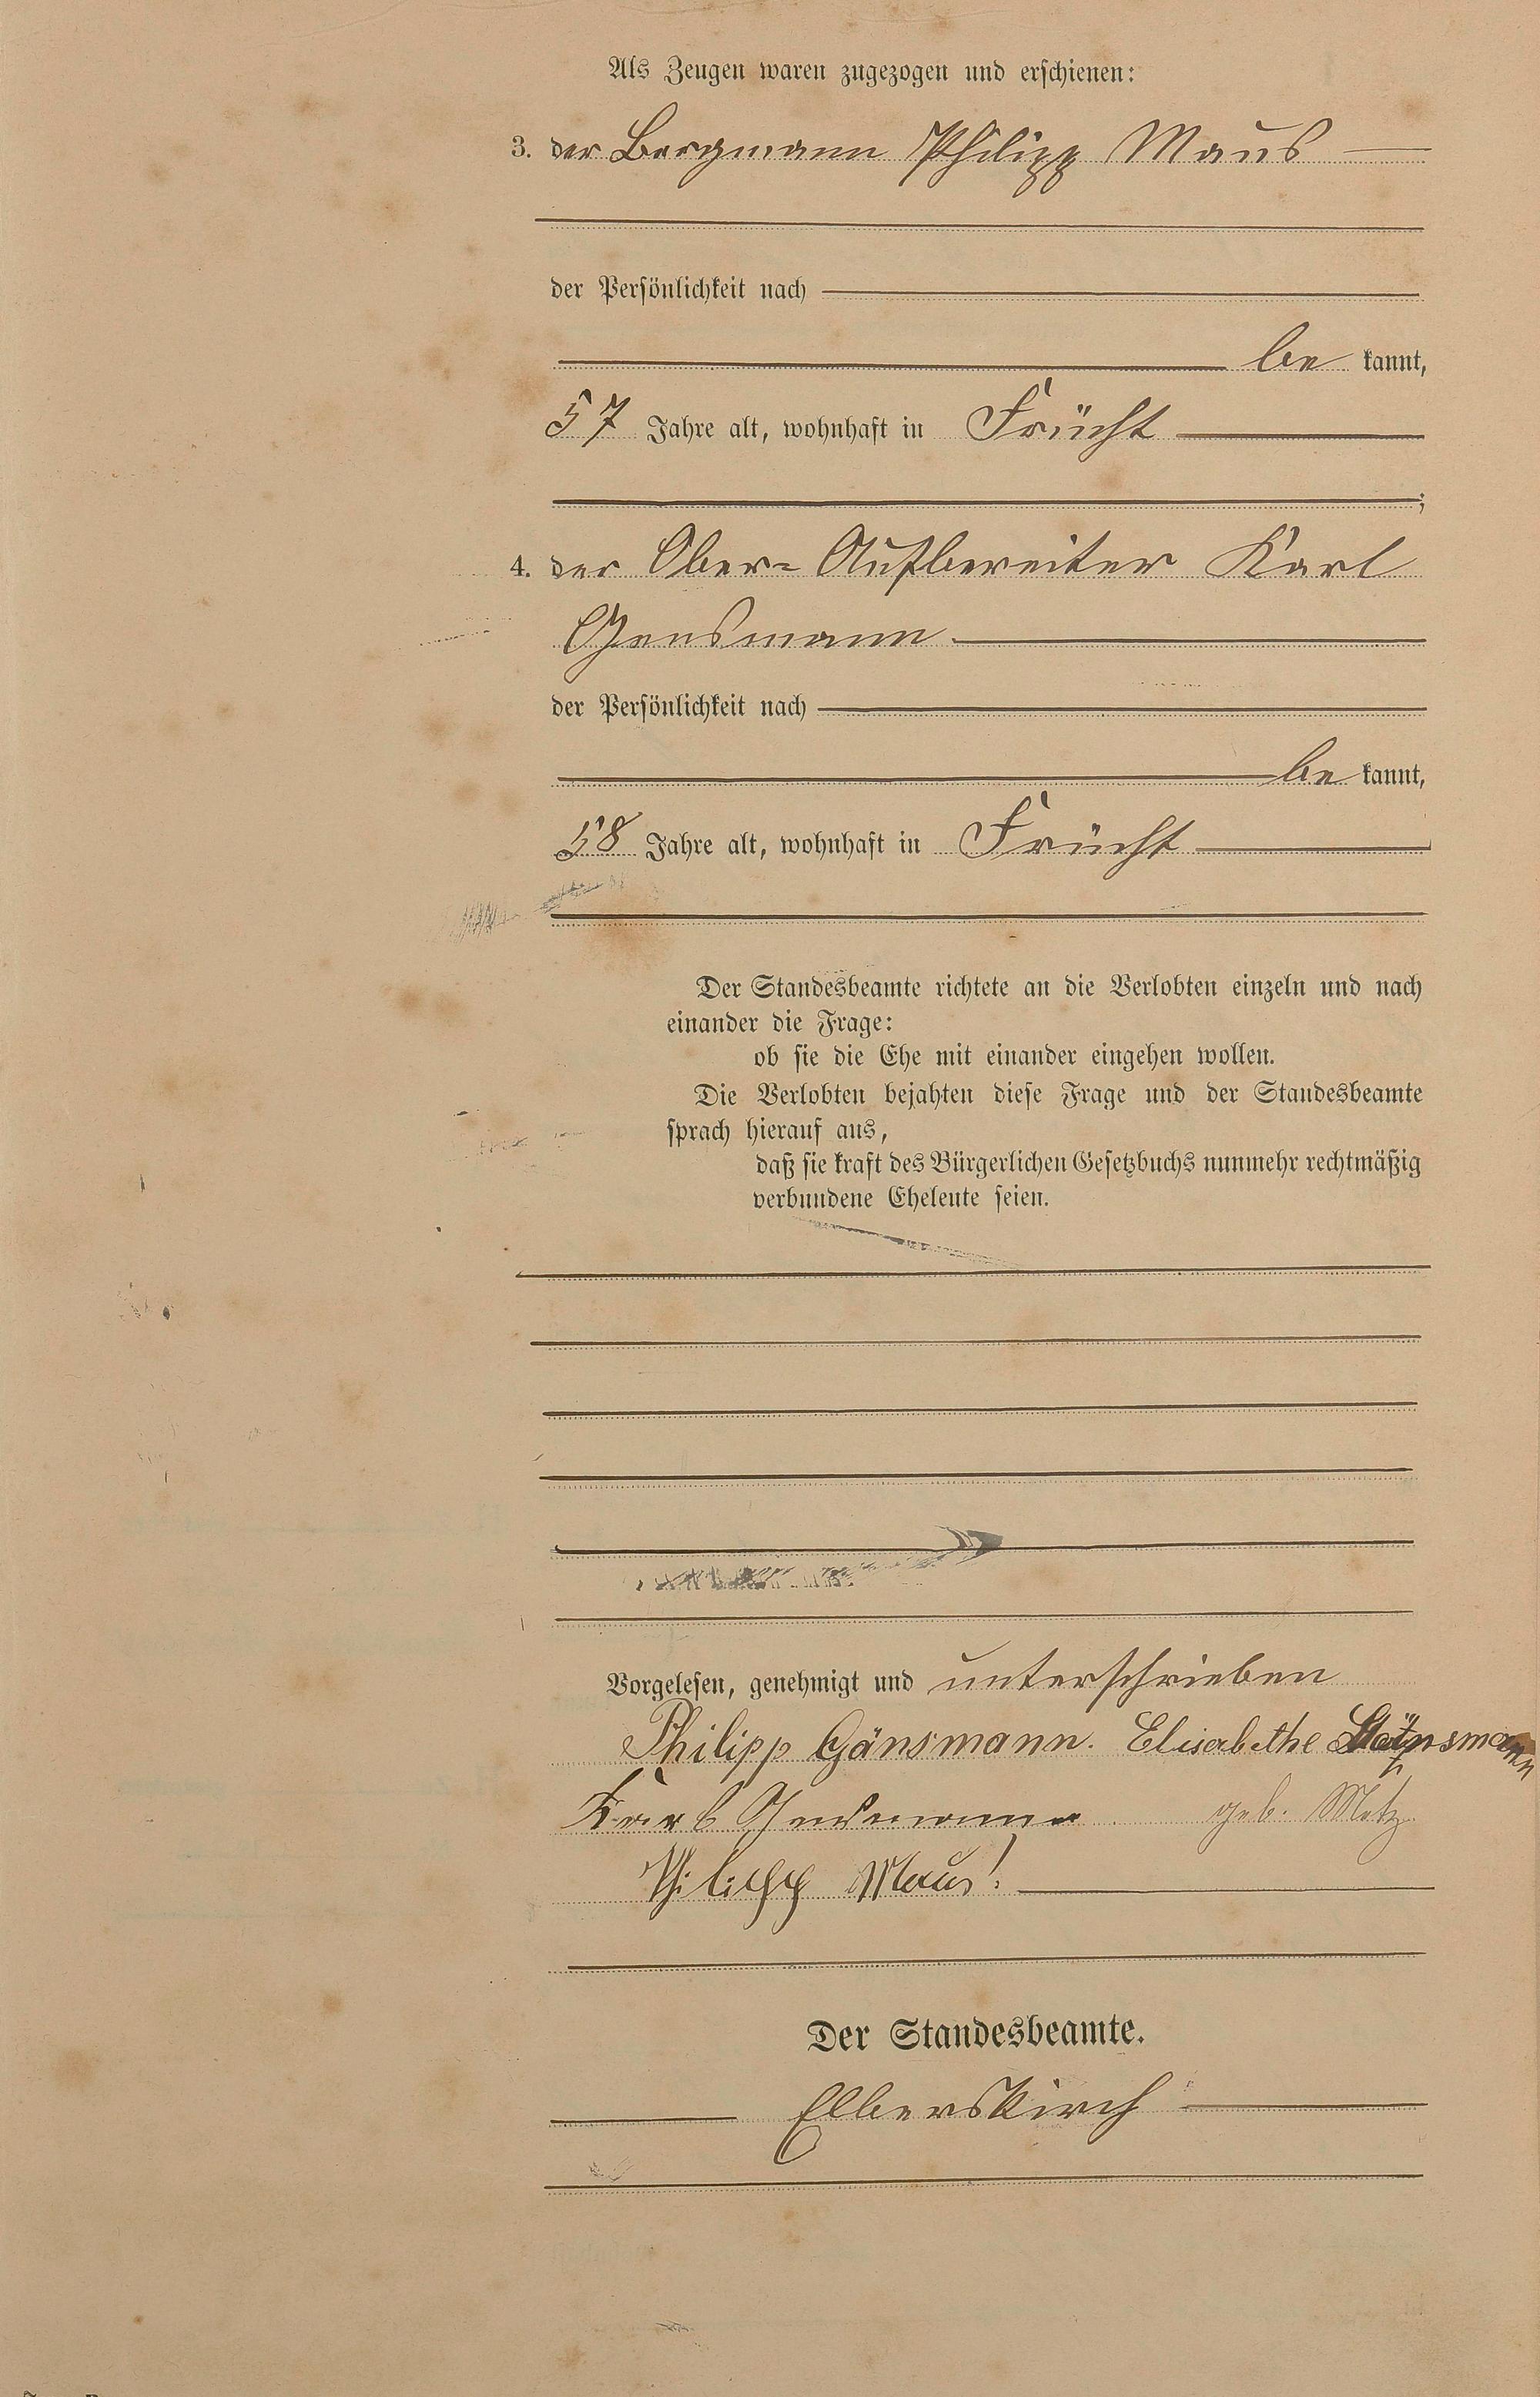 Als Zeugen waren zugezogen und erschienen:
3. der Bergmann Philipp Maus
der Persönlichkeit nach
be kannt,
57 Jahre alt, wohnhaft in Frücht
;
4. der Ober-Aufbereiter Karl
Gensmann
der Persönlichkeit nach
be kannt,
58 Jahre alt, wohnhaft in Frücht
Der Standesbeamte richtete an die Verlobten einzeln und nach
einander die Frage:
ob sie die Ehe mit einander eingehen wollen.
Die Verlobten bejahten diese Frage und der Standesbeamte
sprach hierauf aus,
daß sie kraft des Bürgerlichen Gesetzbuchs nunmehr rechtmäßig
verbundene Eheleute seien.
Vorgelesen, genehmigt und unterschrieben
Philipp Gänsmann. Elisabethe Gänsmann
Karl Gensmann geb. Metz
Philipp Maus.
Der Standesbeamte.
Elberskirch